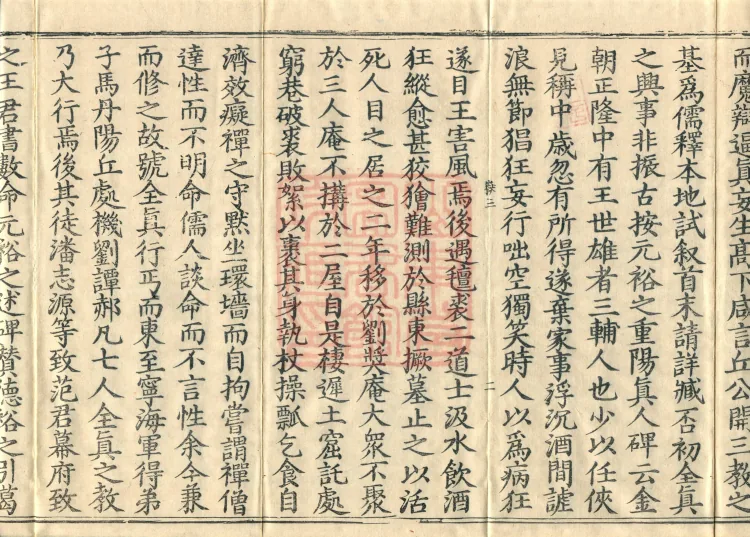 而魔辯逼真妄生髙下咸言丘公開三教之
基爲儒釋本地試叙首末請詳臧否初全眞
之興事非振古按元裕之重陽眞人碑云金
朝正隆中有王世雄者三輔人也少以任俠
見稱中歳忽有所得遂棄家事浮沉酒間謔
浪無節猖狂妄行咄空獨笑時人以爲病狂
卷三
二
遂目王害風焉後遇氊裘二道士汲水飲酒
狂縱愈甚狡獪難測於縣東掘墓止之以活
死人目之居之二年移於劉奬庵大衆不聚
於三人庵不搆於二屋自是棲遲土窟託處
窮巷破裘敗絮以裹其身執杖操瓢乞食自
濟效癡禪之守默坐環墻而自拘嘗謂禪僧
達性而不明命儒人談命而不言性余今兼
而修之故號全眞行丐而東至寧海軍得弟
子馬丹陽丘處機劉譚郝凡七人全眞之教
乃大行焉後其徒潘志源等致范君幕府致
之王君書數命元裕之述碑賛德裕之引葛